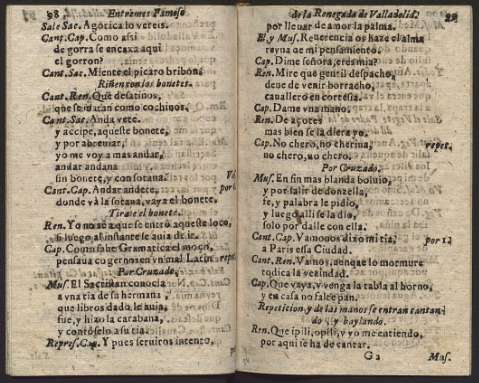 98 Entremes Famoso
Sale Sac. Agora lo vereis.
Cant. Cap. Como assi
de gorra se encaxa aqui
el gorron?
Cant. Sac. Miente el picaro bribon.
Riñen con los bonetes.
Cant. Ren. Que desatinos,
que se matan como cochinos.
Cant. Sac. Anda vete.
y accipe, aqueste bonete,
y por abreuiar,
yo me voy a mas andar,
andar andana
sin bonete, y con sotana.
Cant. Cap. Andar andete,
donde và la sotana, vaya el bonete.
Tirase el bonete.
Ren. Yo no se aqui se entrò aqueste loco,
si luego al instante se auia de ir.
Cap. Como sabe Gramatica el moçn,
pensaua cogernos en vn mal Latin. repe.
Por Cruzado.
Mus. El Sacristan conocia
a vna tia de su hermana,
que libros dado le auia,
fue, y hizo la carabana,
y contòselo a su tia.
Repres. Cap. Y pues seruiros intento,
de la Renegada de Valladolid. 99
por lleuar de amor la palma.
El, y Mus. Reuerencia os haze el alma
reyna de mi pensamiento.
Cap. Dime señora, eres mia?
Ren. Mire que gentil despacho,
deue de venir borracho,
cauallero en cortesia.
Cap. Dame vna mano.
Ren. De açotes
mas bien se la diera yo.
Cap. No chero, no cherina, repet.
no chero, no chero.
Por Cruzado.
Mus. En fin mas blanda boluio,
y por salir de donzella,
fe, y palabra le pidio,
y luego alli se la dio,
solo por dalle con ella.
Cant. Cap. Vamonos dixo mi tia, por 12
a Paris essa Ciudad.
Cant. Ren. Vamos, denque lo mormure
todica la vezindad.
Cap. Que vaya, y venga la tabla al horno,
y en casa no falte pan.
Repeticion, y de las manos se entran cantan-
do, y baylando.
Ren. Que ipili, opili, y yo me entiendo,
por aqui se ha de cantar.
G 2 Mus.